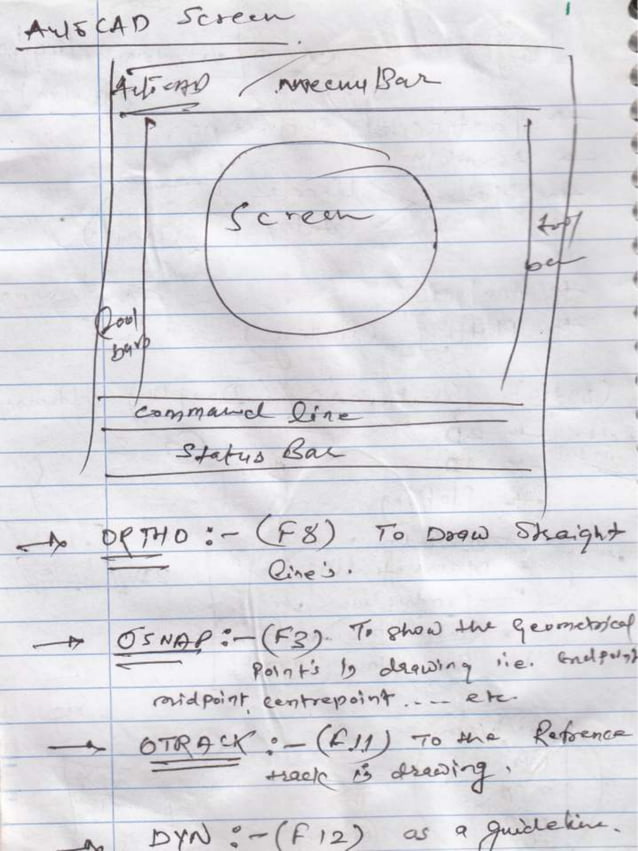 AutoCAD Screen
1
AutoCAD Menu Bar
Screen
tool
bar
Tool
bar
command line
Status Bar
→ ORTHO :- (F8) To Draw Straight
line's.
→ OSNAP :- (F3). To show the Geometrical
point's is drawing i.e. Endpoint
midpoint, centrepoint .... etc.
→ OTRACK :- (F11) To the Refrence
track is drawing.
→ DYN :- (F12) as a guideline.